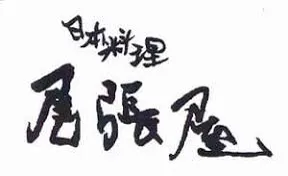 日本料理
尾張屋